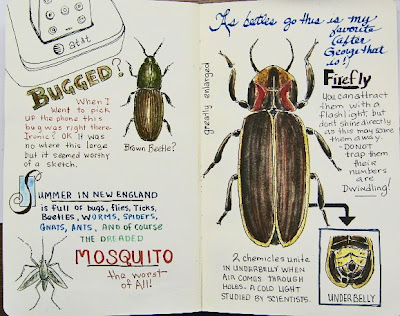 at&t
BUGGED?
When I
went to pick
UP the phone this
bug was right there
Ironic? OK it was
no where this large
but it seemed worthy
of a sketch.
Brown Beetle?
SUMMER IN NEW ENGLAND
is full of bugs, flies, Ticks,
Beetles, WORMS, SPIDERS,
GNATS, ANTS, AND OF COURSE
THE DREADED
MOSQUITO
the worst
of All!
As beetles go this is my
favorite
(after
George that
is!)
greatly enlarged
Firefly
You can attract
them with a
flashlight, but
don't shine directly
as this may scare
them away.
- DO NOT
trap them
their
numbers
are
Dwindling!
2 chemicles unite
IN UNDERBELLY WHEN
AIR COMES THROUGH
HOLES. A COLD LIGHT
STUDIED BY SCIENTISTS.
UNDERBELLY